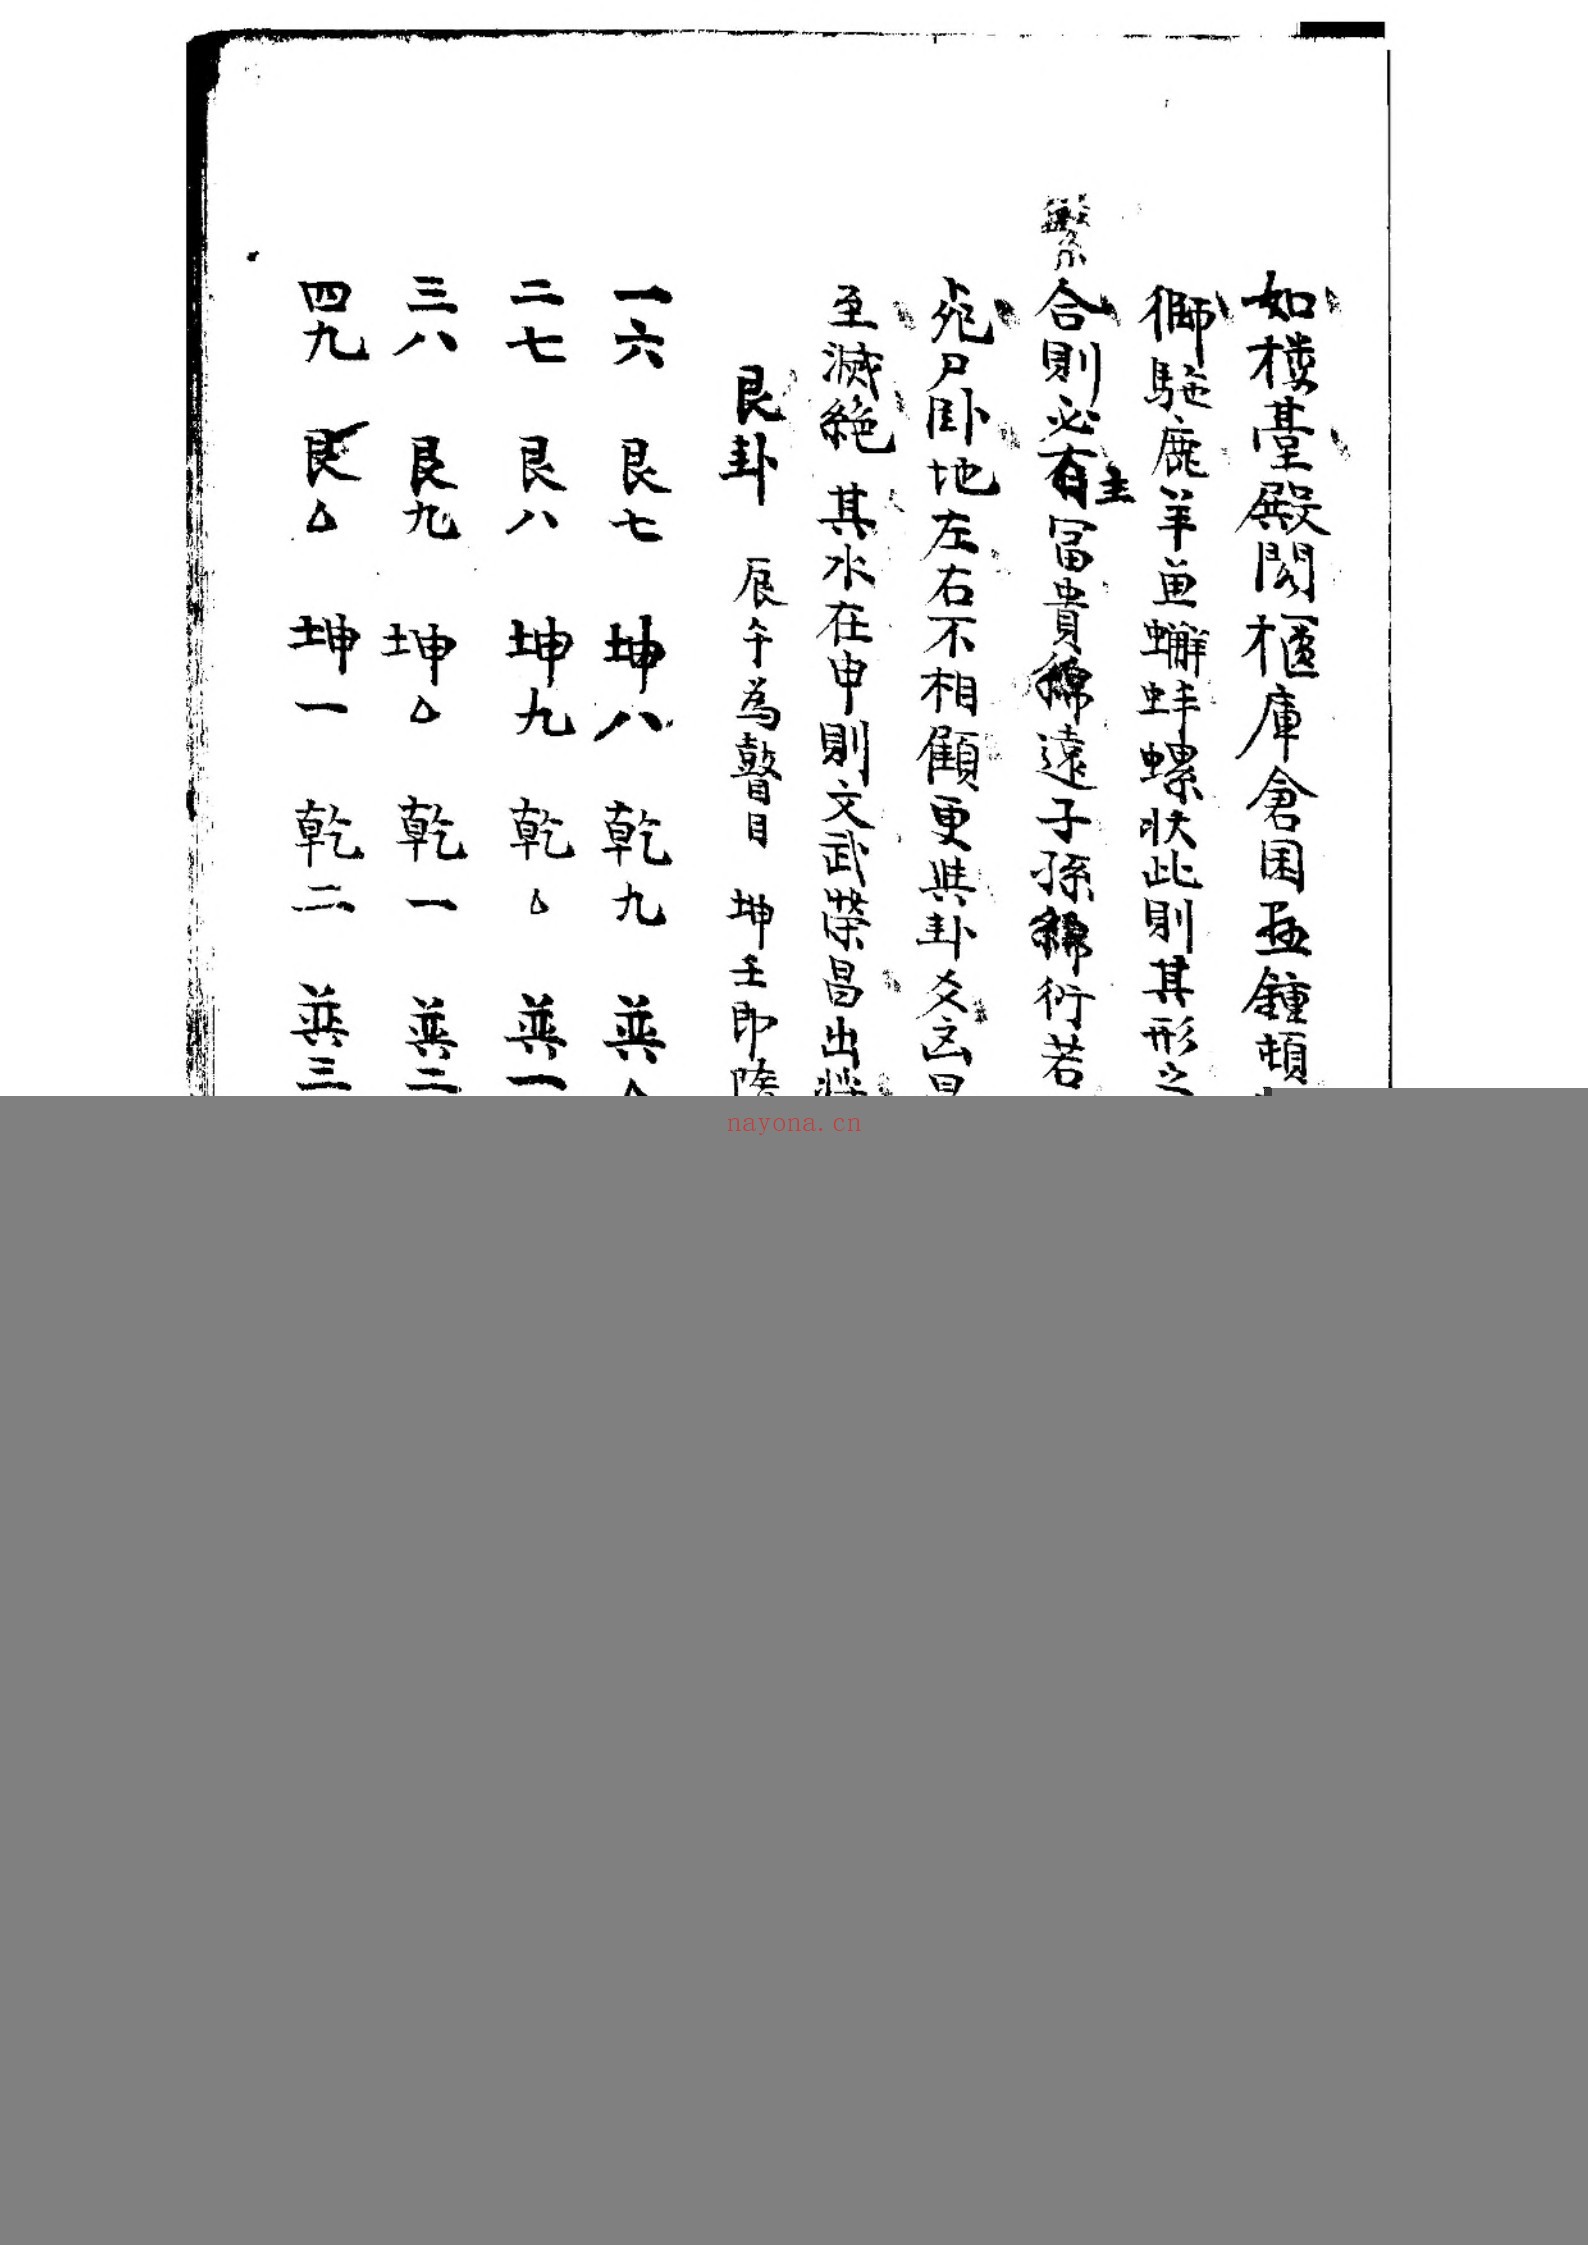 如楼臺殿閣櫃庫倉囷盃鍾頓
獅駞鹿羊魚蠏蚌螺狀此則其形之
繁
合則必有主冨貴綿遠子孫綿衍若
尸卧地左右不相顧更與卦爻凶
至滅絶 其水在申則文武榮昌出
艮卦 辰午為瞽目 坤壬即
一六 艮七 坤八 乾九 巽
二七 艮八 坤九 乾△ 巽一
三八 艮九 坤△ 乾一 巽二
四九 艮△ 坤一 乾二 巽三
nayona.cn